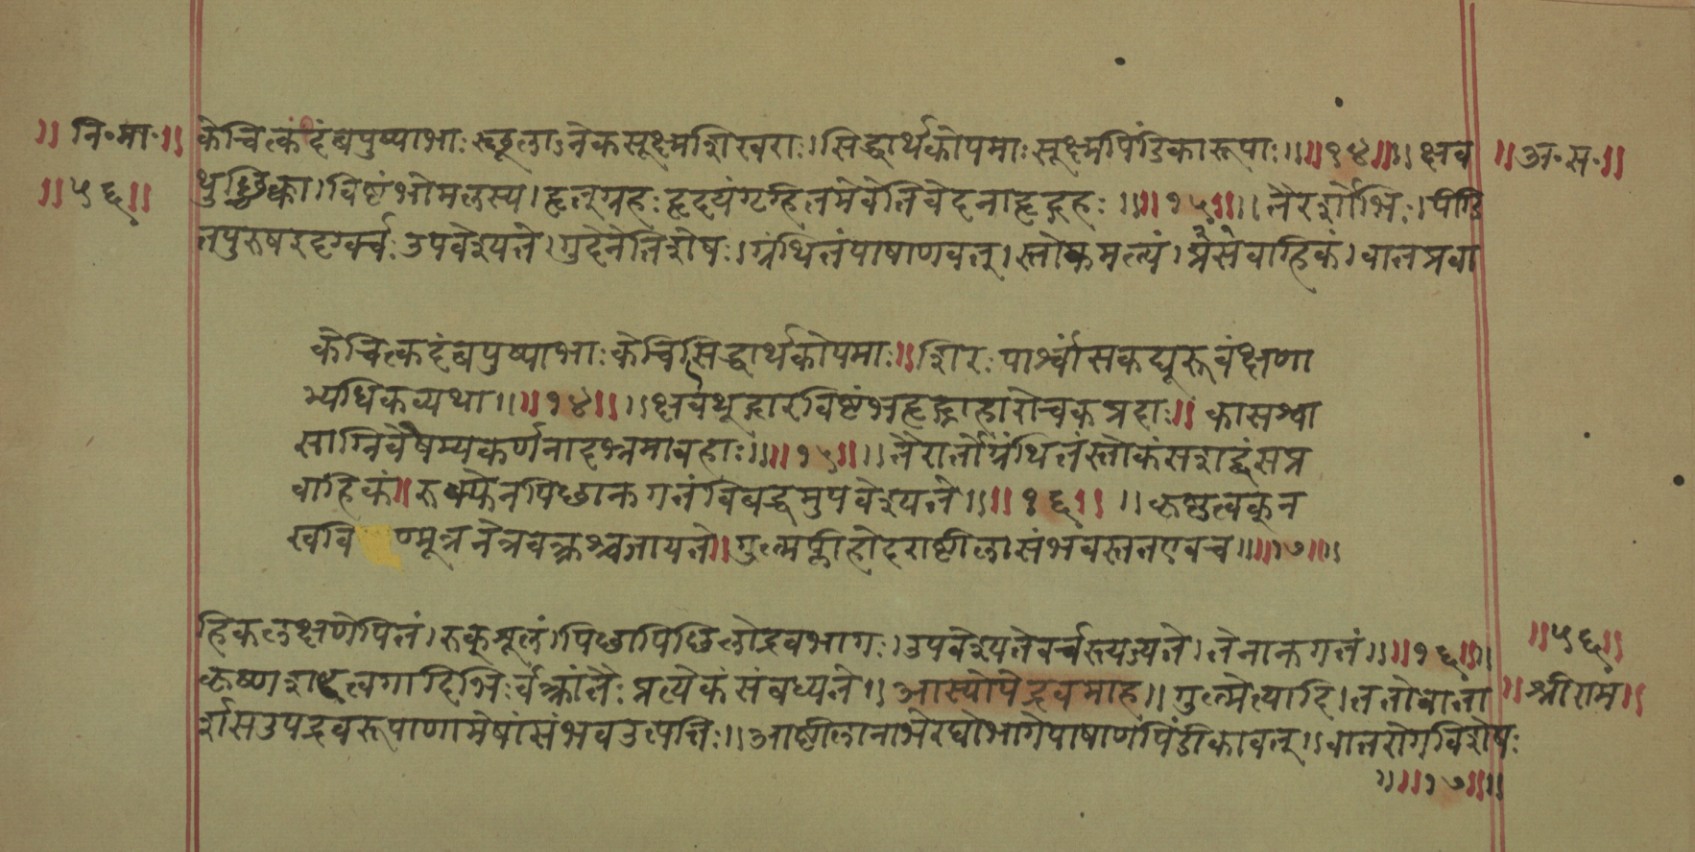 ॥ नि॰मा॰॥
॥५६॥
केचित्कदंबपुष्पाभाः स्थूलाऽनेकसूक्ष्मशिखराः। सिद्धार्थकोपमाः सूक्ष्मपिंडिकारूपाः॥॥१४॥॥ क्षव
॥अ॰स॰॥
थुश्छिक्का। विष्टंभोमलस्य। हृत्ग्रहः हृदयंगृहितमेवेतिवेदनाहृद्ग्रहः॥॥१५॥॥ तैरर्शोभिः। पीडि
तपुरुषरदृग्वर्चः उपवेश्यते। गुदेनेतिशेषः। ग्रंथितंपाषाणवत्। स्तोकमल्पं। प्रसेवाहिकं। वातप्रवा
केचित्कदंबपुष्पाभाः केचित्सिद्धार्थकोपमाः॥ शिरः पार्श्वांसकट्यूरूवंक्षणा
भ्यधिकव्यथा॥॥१४॥॥ क्षवथूद्गारविष्टंभहृद्ग्राहारोचकप्रदाः॥ कासश्वा
साग्निवैषम्यकर्णनादभ्रमावहाः॥॥१५॥॥ तैरार्तोग्रंथितंस्तोकंसशब्दंसप्र
वाहिकं॥ रुक्फेनपिछानुगतंविबद्धमुपवेश्यते॥॥१६॥॥ कृष्णत्वक्न
खविण्मूत्रनेत्रवक्त्रश्चजायते॥ गुल्मप्लीहोदराष्टीलासंभवस्ततएवच॥॥१७॥॥
हिकलक्षणेपितं। रुक्शूलं। पिछापिछिलोद्रवभागः। उपवेश्यतेवर्चस्त्यज्यते। तेनानुगतं॥॥१६॥॥
॥५६॥
कृष्णशब्दत्वगादिभिः र्वक्त्रांतैः प्रत्येकं संबध्यते॥ आस्योपद्रवमाह॥ गुल्मेत्यादि। ततोवाता
॥श्रीराम॥
र्शसउपद्रवरूपाणामेषांसंभवउत्पत्तिः॥ आष्टीलानाभेरधोभागेपाषाणपिंडीकावत्॥ वातरोगविशेषः
॥॥१७॥॥